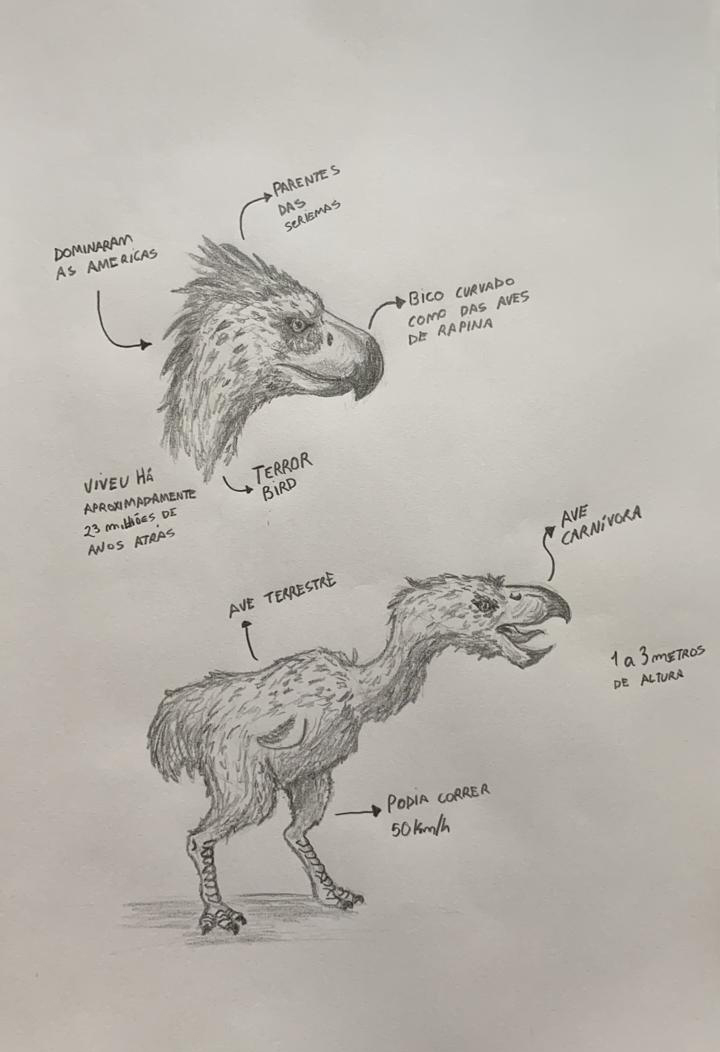 PARENTES
DAS
SERIEMAS
DOMINARAM
AS AMERICAS
BICO CURVADO
COMO DAS AVES
DE RAPINA
TERROR
BIRD
VIVEU HÁ
APROXIMADAMENTE
23 milhões DE
ANOS ATRÁS
AVE
CARNÍVORA
AVE TERRESTRE
1 a 3 METROS
DE ALTURA
PODIA CORRER
50 km/h